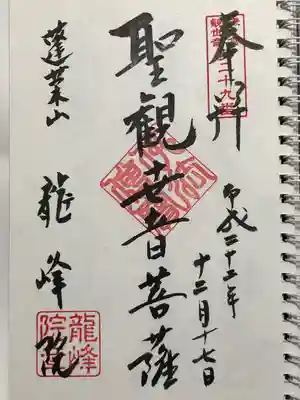 奉拝
二十九
平成二十二年
十二月十七日
聖観世音菩薩
蓬莱山 龍峰院
龍峰